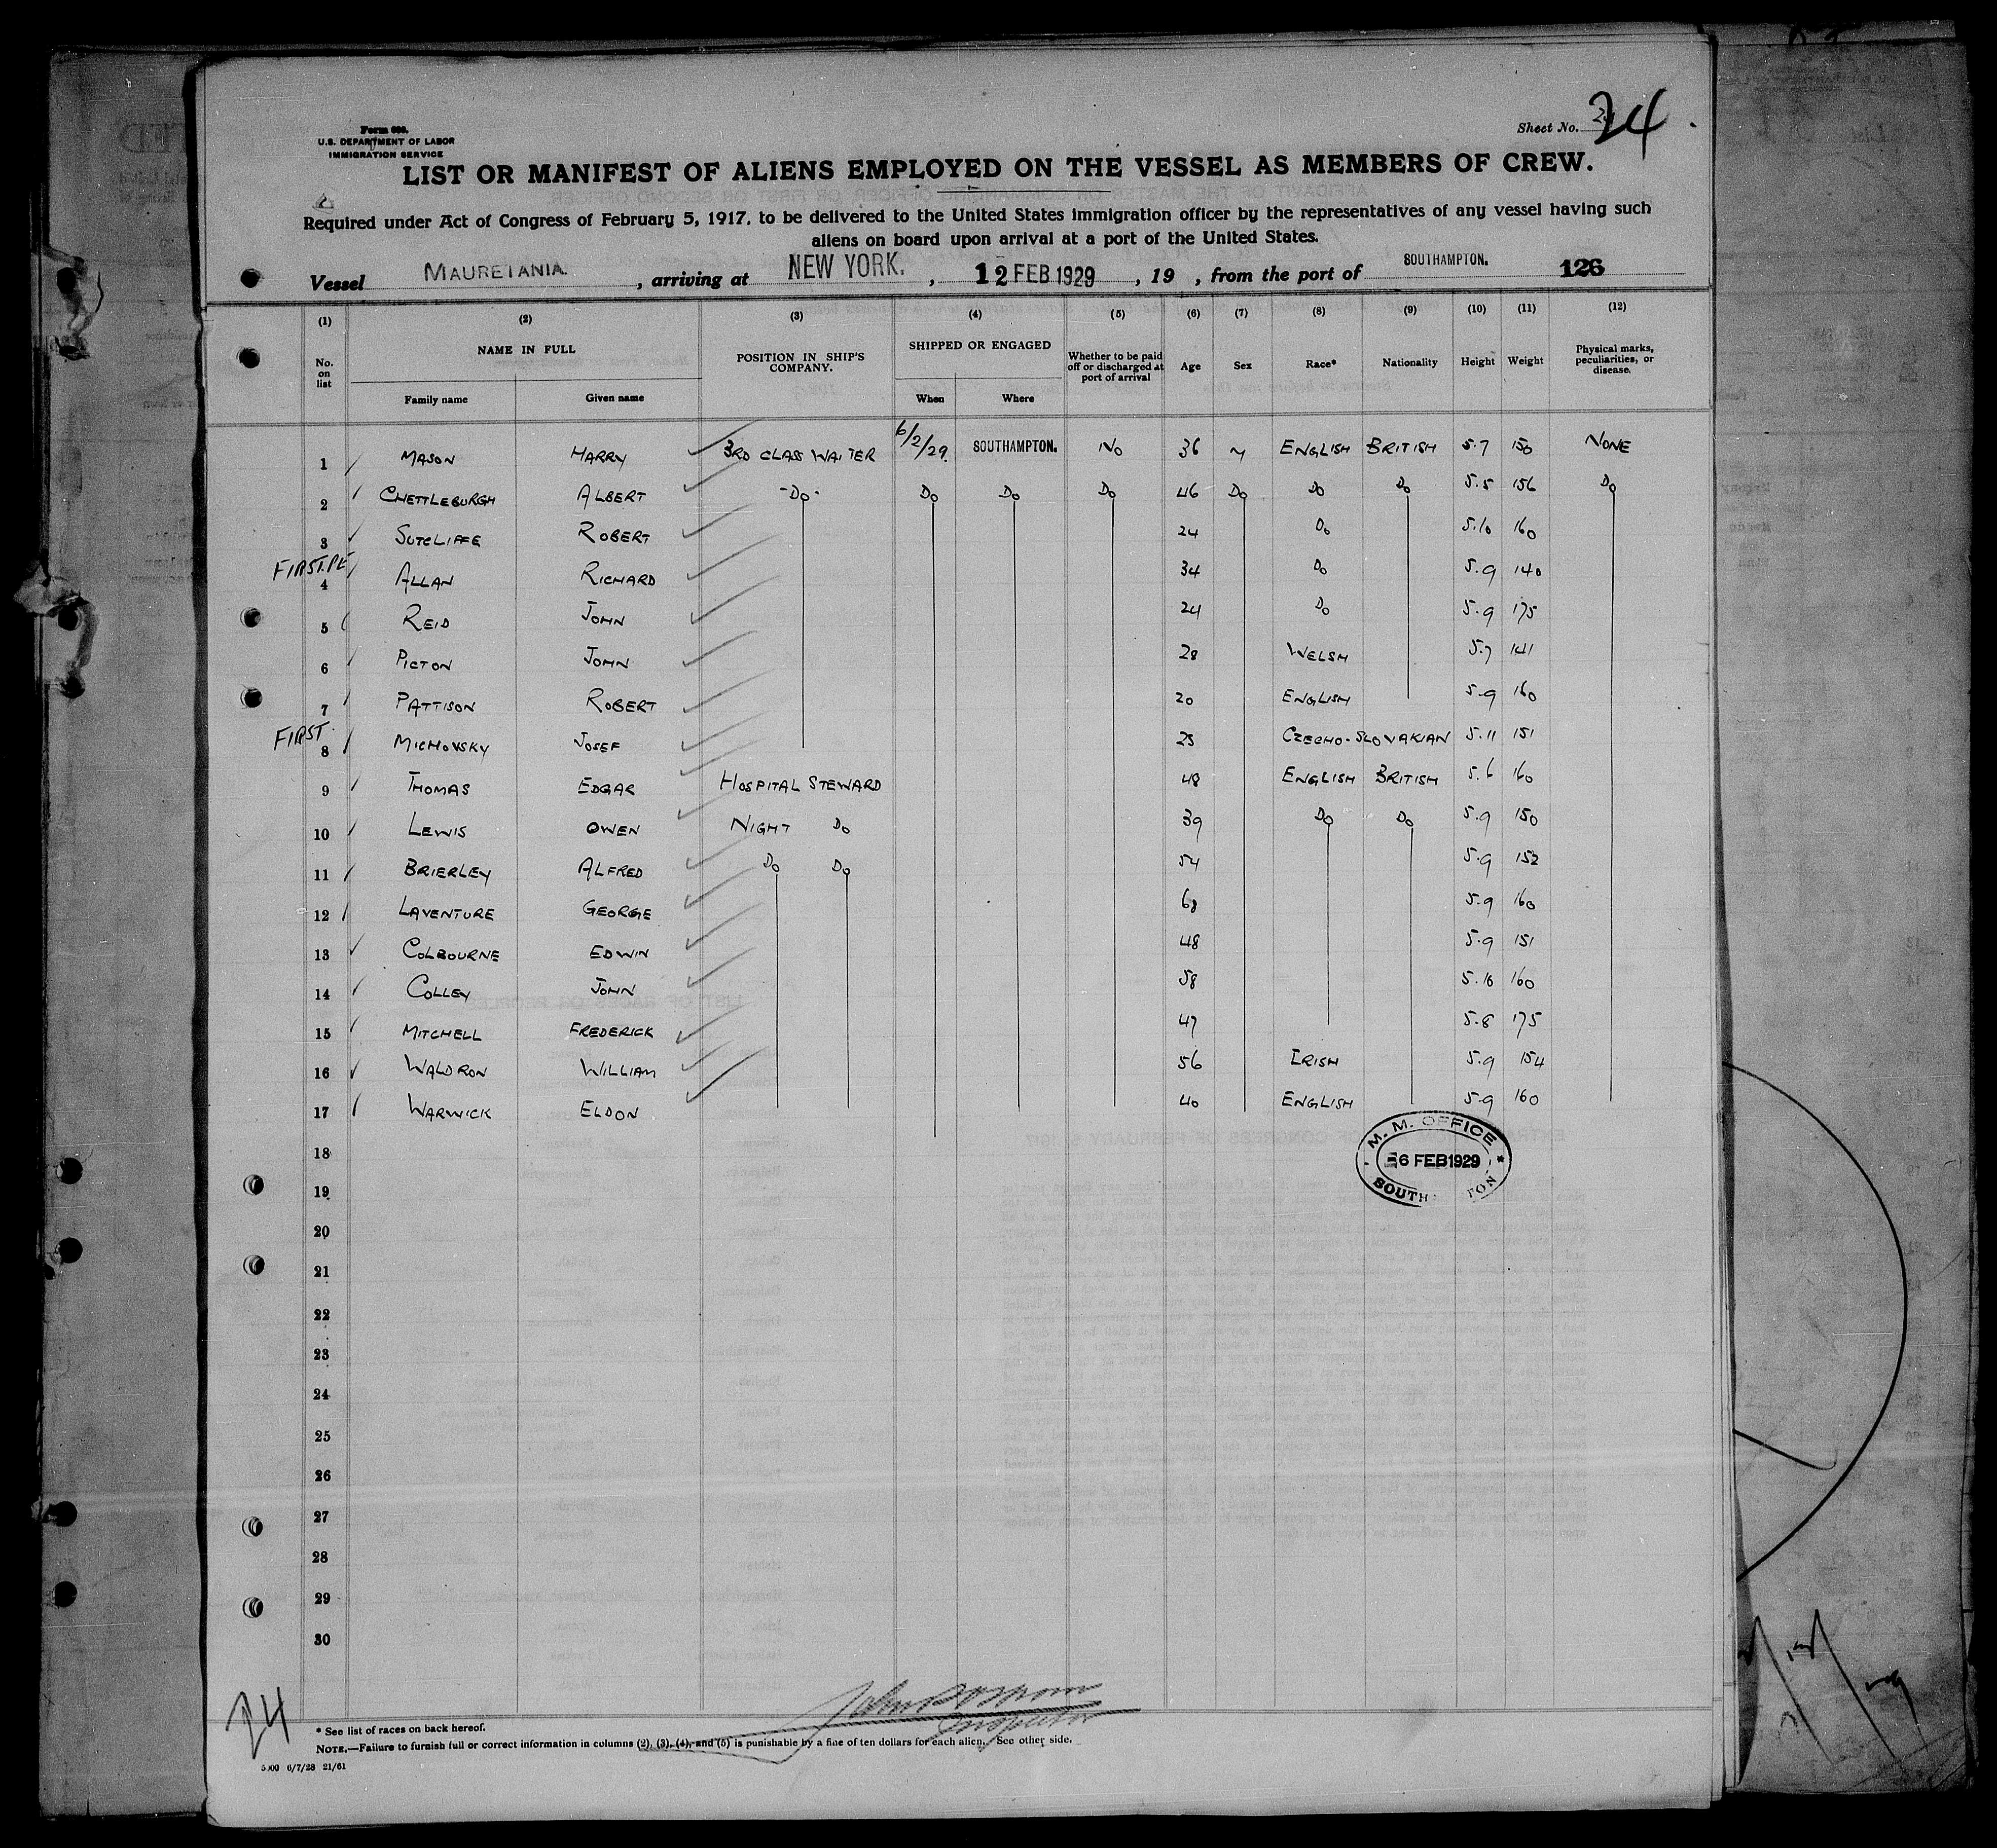 Sheet No. 24.
Form 680.
U.S. DEPARTMENT OF LABOR
IMMIGRATION SERVICE
LIST OR MANIFEST OF ALIENS EMPLOYED ON THE VESSEL AS MEMBERS OF CREW.
Required under Act of Congress of February 5, 1917, to be delivered to the United States immigration officer by the representatives of any vessel having such
aliens on board upon arrival at a port of the United States.
Vessel MAURETANIA. , arriving at NEW YORK. , 12 FEB 1929 , 19 , from the port of SOUTHAMPTON. 126
(1) (2) (3) (4) (5) (6) (7) (8) (9) (10) (11) (12)
No. on list NAME IN FULL POSITION IN SHIP'S COMPANY. SHIPPED OR ENGAGED Whether to be paid off or discharged at port of arrival Age Sex Race* Nationality Height Weight Physical marks, peculiarities, or disease.
Family name Given name When Where
1 MASON HARRY 3RD CLASS WAITER 6/2/29. SOUTHAMPTON. No 36 M ENGLISH BRITISH 5.7 150 NONE
2 CHETTLEBURGH ALBERT -Do- Do Do Do 46 Do Do Do 5.5 156 Do
3 SUTCLIFFE ROBERT 24 Do 5.10 160
FIRST.PE 4 ALLAN RICHARD 34 Do 5.9 140
5 REID JOHN 24 Do 5.9 175
6 PICTON JOHN 28 WELSH 5.7 141
7 PATTISON ROBERT 20 ENGLISH 5.9 160
FIRST. 8 MICHOVSKY JOSEF 25 CZECHO-SLOVAKIAN 5.11 151
9 THOMAS EDGAR HOSPITAL STEWARD 48 ENGLISH BRITISH 5.6 160
10 LEWIS OWEN NIGHT Do 39 Do Do 5.9 150
11 BRIERLEY ALFRED Do Do 54 5.9 152
12 LAVENTURE GEORGE 5.9 160
13 COLBOURNE EDWIN 48 5.9 151
14 COLLEY JOHN 58 5.10 160
15 MITCHELL FREDERICK 47 5.8 175
16 WALDRON WILLIAM 56 IRISH 5.9 154
17 WARWICK ELDON 40 ENGLISH 5.9 160
18
M. M. OFFICE
6 FEB 1929
SOUTH TON
19
20
21
22
23
24
25
26
27
28
29
30
Inspector
24
* See list of races on back hereof.
NOTE.—Failure to furnish full or correct information in columns (2), (3), (4), and (5) is punishable by a fine of ten dollars for each alien. See other side.
6/7/28 21/61